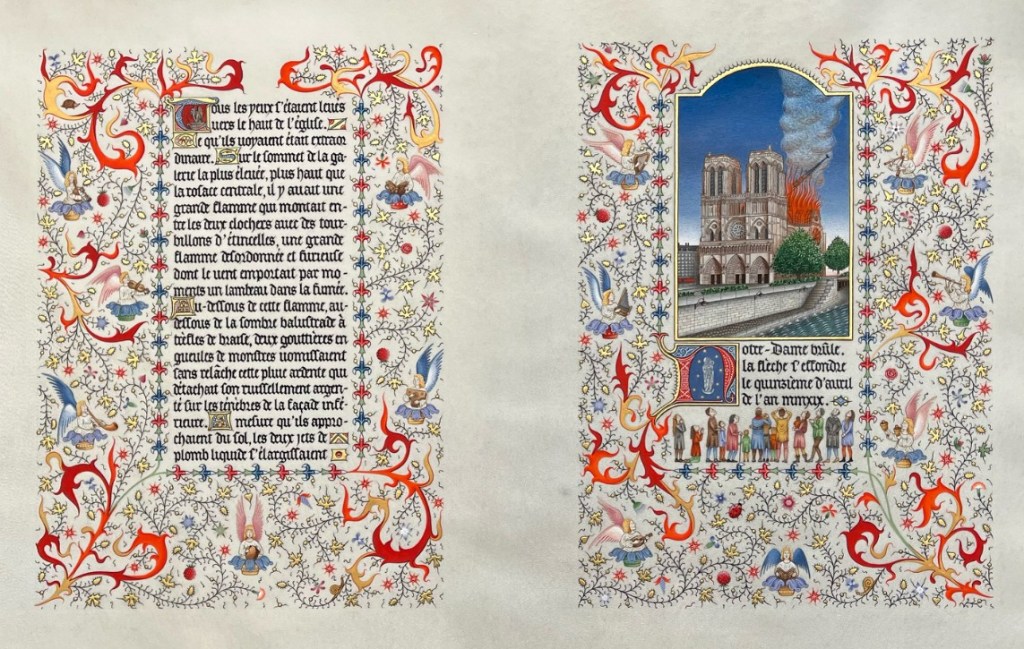 Tous les yeux s'étaient levés
vers le haut de l'église.
Ce qu'ils voyaient était extraor
dinaire. Sur le sommet de la ga-
lerie la plus élevée, plus haut que
la rosace centrale, il y avait une
grande flamme qui montait en-
tre les deux clochers avec des tour-
billons d'étincelles, une grande
flamme désordonnée et furieuse
dont le vent emportait par mo-
ments un lambeau dans la fumée.
Au-dessous de cette flamme, au-
dessous de la sombre balustrade à
trèfles de braise, deux gouttières en
gueules de monstres vomissaient
sans relâche cette pluie ardente qui
détachait son ruissellement argen-
té sur les ténèbres de la façade infé-
rieure. A mesure qu'ils appro-
chaient du sol, les deux jets de
plomb liquide s'élargissaient
Notre-Dame brûle.
la flèche s'effondre
le quinzième d'avril
de l'an mmxix.